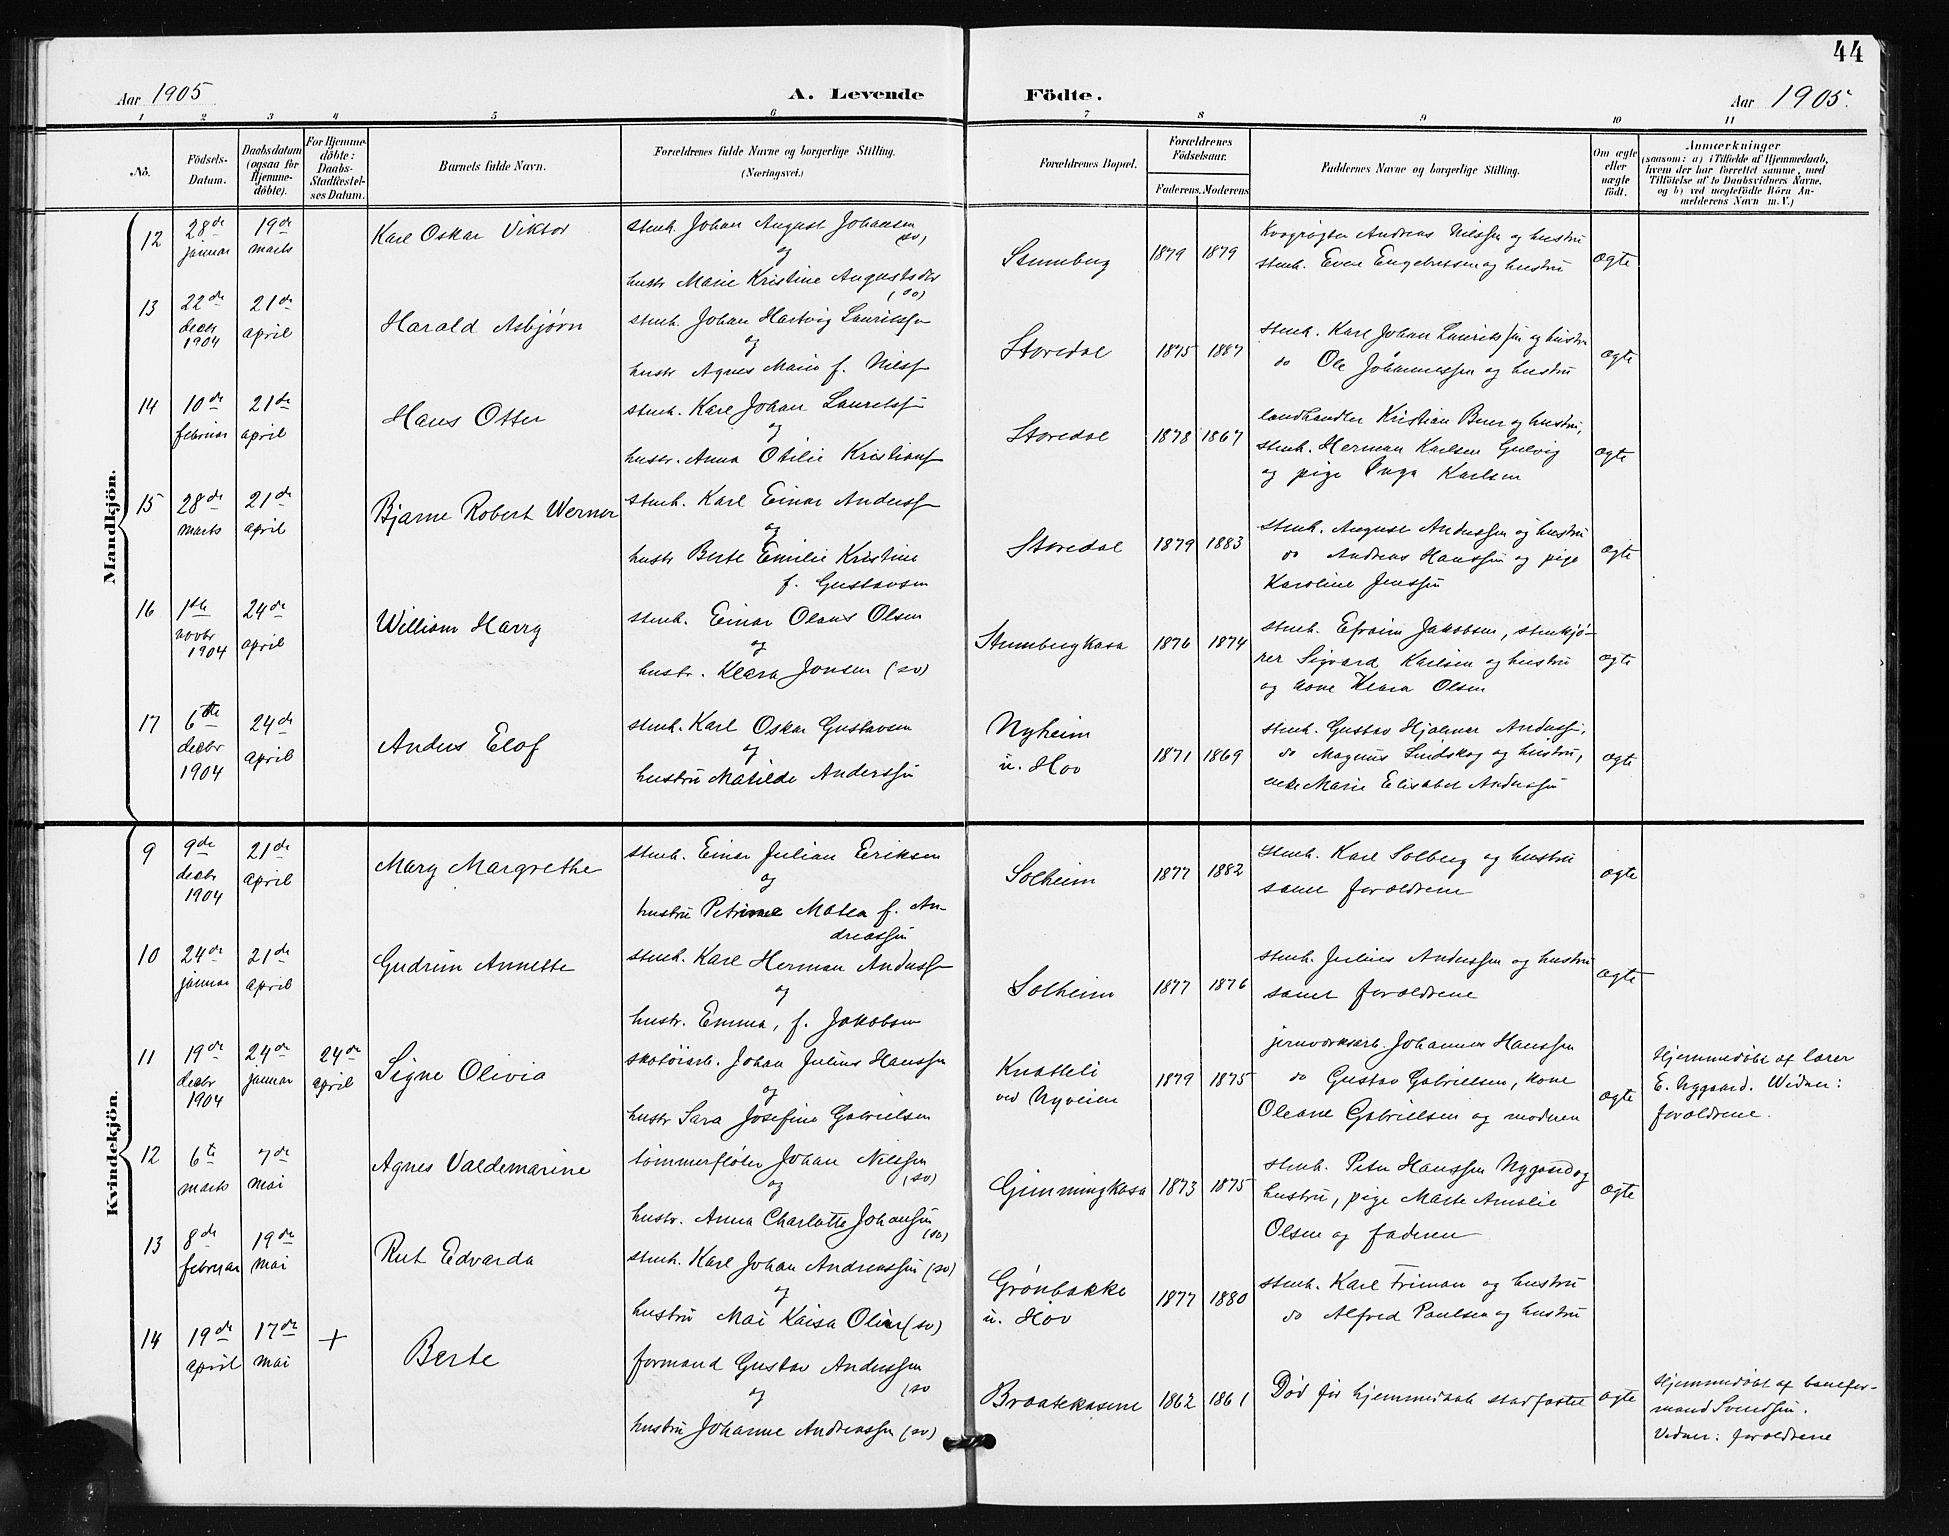 44
Aar 1905
A. Levende Födte.
Aar 1905.
1 2 3 4 5 6 7 8 9 10 11
No.
Födsels-
Datum.
Daabsdatum
(ogsaa for
Hjemme-
döbte).
For Hjemme-
döbte:
Daabs-
Stadfæstel-
ses Datum.
Barnets fulde Navn.
Forældrenes fulde Navne og borgerlige Stilling.
(Næringsvei.)
Forældrenes Bopæl.
Forældrenes
Fødselsaar.
Faderens. Moderens.
Faddernes Navne og borgerlige Stilling.
Om ægte
eller
uægte
født.
Anmærkninger
(saasom: a) i Tilfælde af Hjemmedaab,
hvem der har forrettet samme, med
Tilföielse af to Daabsvidners Navne,
og b) ved uegtefödte Börn An-
melderens Navn m. V.)
Mandkjön.
12
28de
januar
19de
marts
Karl Oskar Viktor
stenh. Johan August Johansen
(sv)
og
hustr Marie Kristine Augustsdtr
(sv)
Stenneberg
1879 1879
Andreas Nilssen og hustru
stenh. Even Engebretsen og hustru
ægte
13
22de
decbr
1904
21de
april
Harald Asbjørn
stenh. Johan Hartvig Lauritssn
og
hustr Agnes Marie f. Nilss
Storedal
1875 1887
stenh. Karl Johan Lauritssen og hustru
do Ole Johannessen og hustru
ægte
14
10de
februar
21de
april
Hans Otter
stenh. Karl Johan Lauritss
og
hustr. Anna Otilie Kristians
Storedal
1878 1867
landhandler Kristian Buer og hustru,
stenh. Herman Karlsen Gulvig
og pige Inga Karlsen
ægte
15
28de
marts
21de
april
Bjarne Robert Werner
stenh. Karl Einar Anderss
og
hustr Berte Emilie Kristine
f. Gustavsen
Storedal
1879 1883
stenh. August Anderssen og hustru
do Andreas Hanssen og pige
Karoline Jenssen
ægte
16
1ste
novbr
1904
24de
april
William Harry
stenh. Einar Olaus Olsen
og
hustr. Klara Jonsen (sv)
1876 1874
stenh. Efraim Jakobsen, stenkjø-
rer Sigvard Karlsen og hustru
og kone Klara Olsen
ægte
17
6te
decbr
1904
24de
april
Anders Elof
stenh. Karl Oskar Gustavsen
og
hustru Matilde Anderssen
Nyheim
u. Hov
1871 1869
stenh. Gustav Hjalmar Anderss,
do Magnus Lindskog og hustru,
enke Marie Elisabet Anderssen
ægte
Kvindekjön.
9
9de
decbr
1904
21de
april
Mary Margrethe
stenh. Einar Julian Eriksen
og
hustru Petrine Matea f. An-
dreassen
Solheim
1877 1882
stenh. Karl Solberg og hustru
samt forældrene
ægte
10
24de
januar
21de
april
Gudrun Annette
stenh. Karl Herman Anderss
og
hustr. Emma, f. Jakobsen
Solheim
1877 1876
stenh. Julius Anderssen og hustru
samt forældrene
ægte
11
19de
decbr
1904
24de
januar
24de
april
Signe Olivia
skotøiarb. Johan Julius Hanssen
og
hustr Sara Josefine Gabrielsen
Knatteli
ved Nyveien
1879 1875
jernverksarb. Johannes Hanssen
do Gustav Gabrielsen, kone
Oleane Gabrielsen og moderen
ægte
Hjemmedøbt af lærer
E. Nygaard. Vidner:
forældrene.
12
6te
marts
7de
mai
Agnes Valdemarine
tømmerfløter Johan Nilssen
(sv)
og
hustr. Anna Charlotte Johanssen
(sv)
Gimmingkasa
1873 1875
stenh. Peter Hanssen Nygaard og
hustru, pige Marte Amalie
Olsen og faderen
ægte
13
8de
februar
19de
mai
Rut Edvarda
stenh. Karl Johan Andreassen (sv)
og
hustru Mai Kaisa Olin (sv)
Grønbakke
u. Hov
1877 1880
stenh. Karl Friman og hustru
do Alfred Paulsen og hustru
14
19de
april
17de
mai
+
Berte
formand Gustav Anderssen
(sv
og
hustru Johanne Andreassen (sv)
Braatekasene
1862 1861
Død før hjemmedaab stadfæstet
ægte
Hjemmedøbt af banefor-
mand Svendsen.
Vidner: forældrene